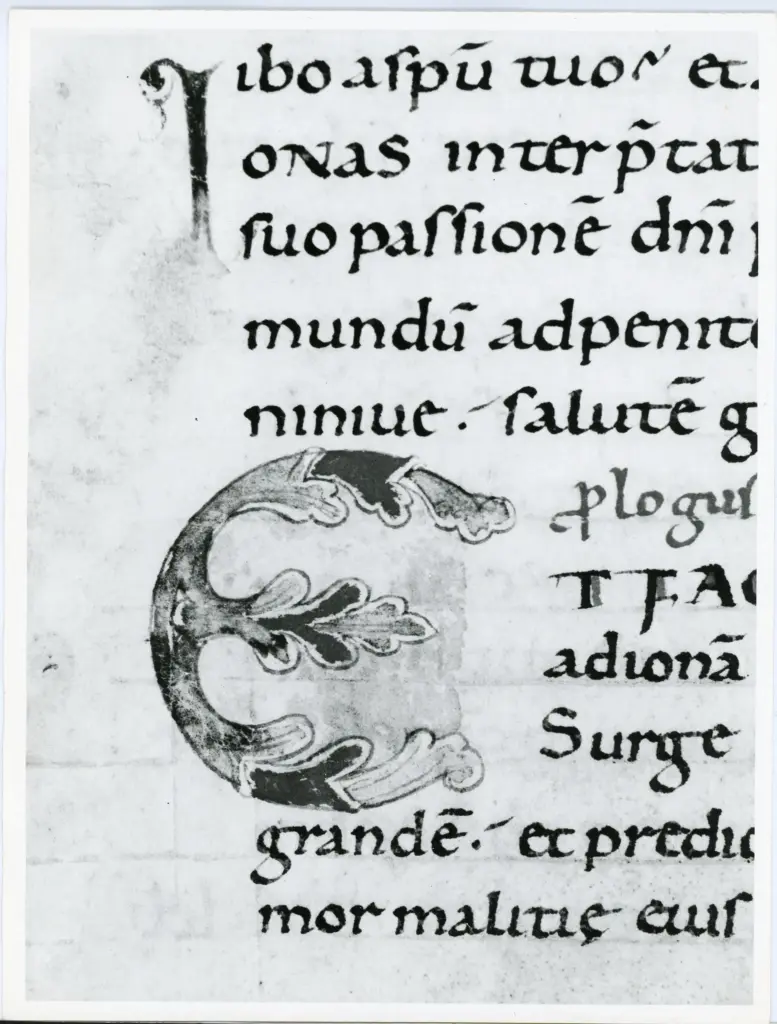 ibo a ſpū tuo et
IONAS interp̄tat
ſuo paſſionē dn̄i p
mundū ad penite
niniue. ſalutē g
plogus
ET FAC
ad ionā
Surge
grandē. et predic
mor malitię eiuſ